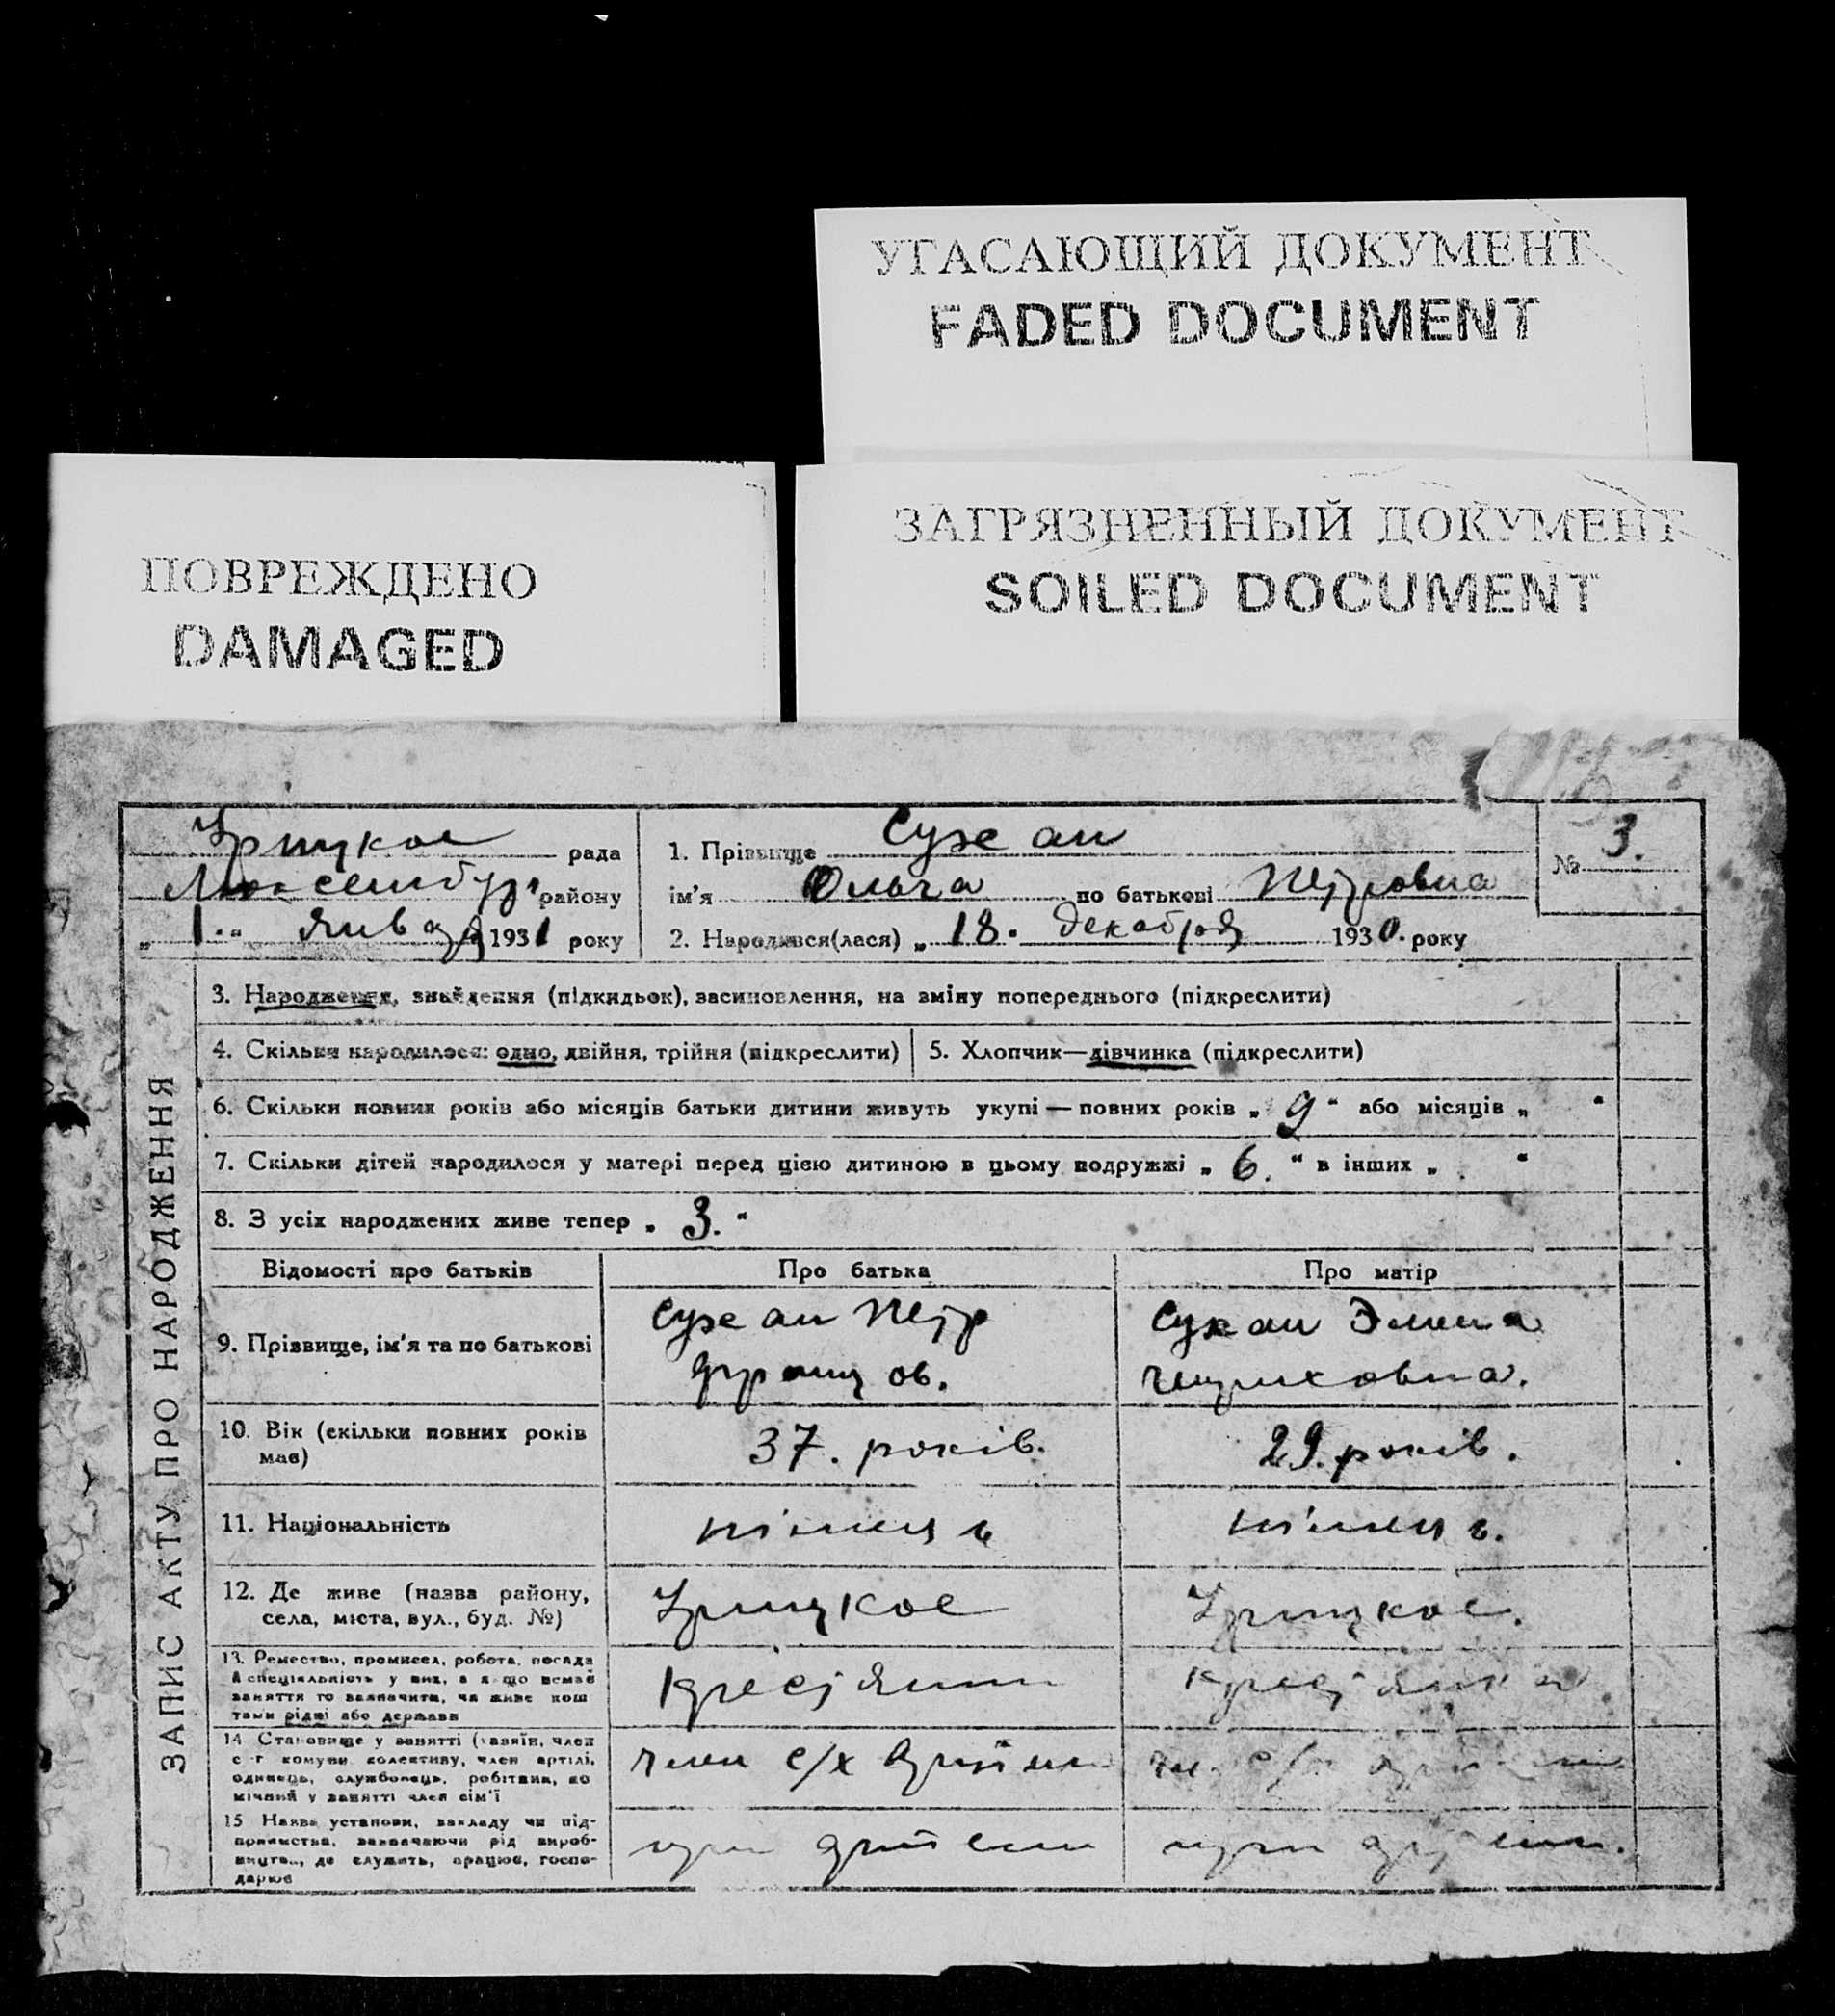 УГАСАЮЩИЙ ДОКУМЕНТ
FADED DOCUMENT
ПОВРЕЖДЕНО
DAMAGED
ЗАГРЯЗНЕННЫЙ ДОКУМЕНТ
SOILED DOCUMENT
ЗАПИС АКТУ ПРО НАРОДЖЕННЯ
Урицкое рада
району
„ 1. “ января 1931 року
1. Прізвище
ім'я Ольга по батькові Петровна
2. Народився(лася) „ 18. декабря 1930. року
№ 3.
3. Народження, знайдення (підкидьок), засиновлення, на зміну попереднього (підкреслити)
4. Скільки народилося: одно, двійня, трійня (підкреслити)
5. Хлопчик—дівчинка (підкреслити)
6. Скільки повних років або місяців батьки дитини живуть укупі — повних років „ 9 “ або місяців „ “
7. Скільки дітей народилося у матері перед цією дитиною в цьому подружжі „ 6. “ в інших „ “
8. З усіх народжених живе тепер „ 3. “
Відомості про батьків
Про батька
Про матір
9. Прізвище, ім'я та по батькові
Петр
10. Вік (скільки повних років
має)
37. років.
29. років.
11. Національність
німець
німець.
12. Де живе (назва району,
села, міста, вул., буд. №)
Урицкое
Урицкое.
13. Ремество, промисел, робота, посада
й спеціяльність у них, а якщо немає
заняття то зазначити, чи живе кош
тами рідні або держави
14 Становище у занятті (хазяїн, член
с-г комуни, колективу, член артілі,
одинець, службовець, робітник, по
мічний у занятті член сім'ї
член с/х
15 Назва установи, закладу чи під-
приємства, зазначаючи рід вироб-
ництва, де служить, працює, госпо-
дарює